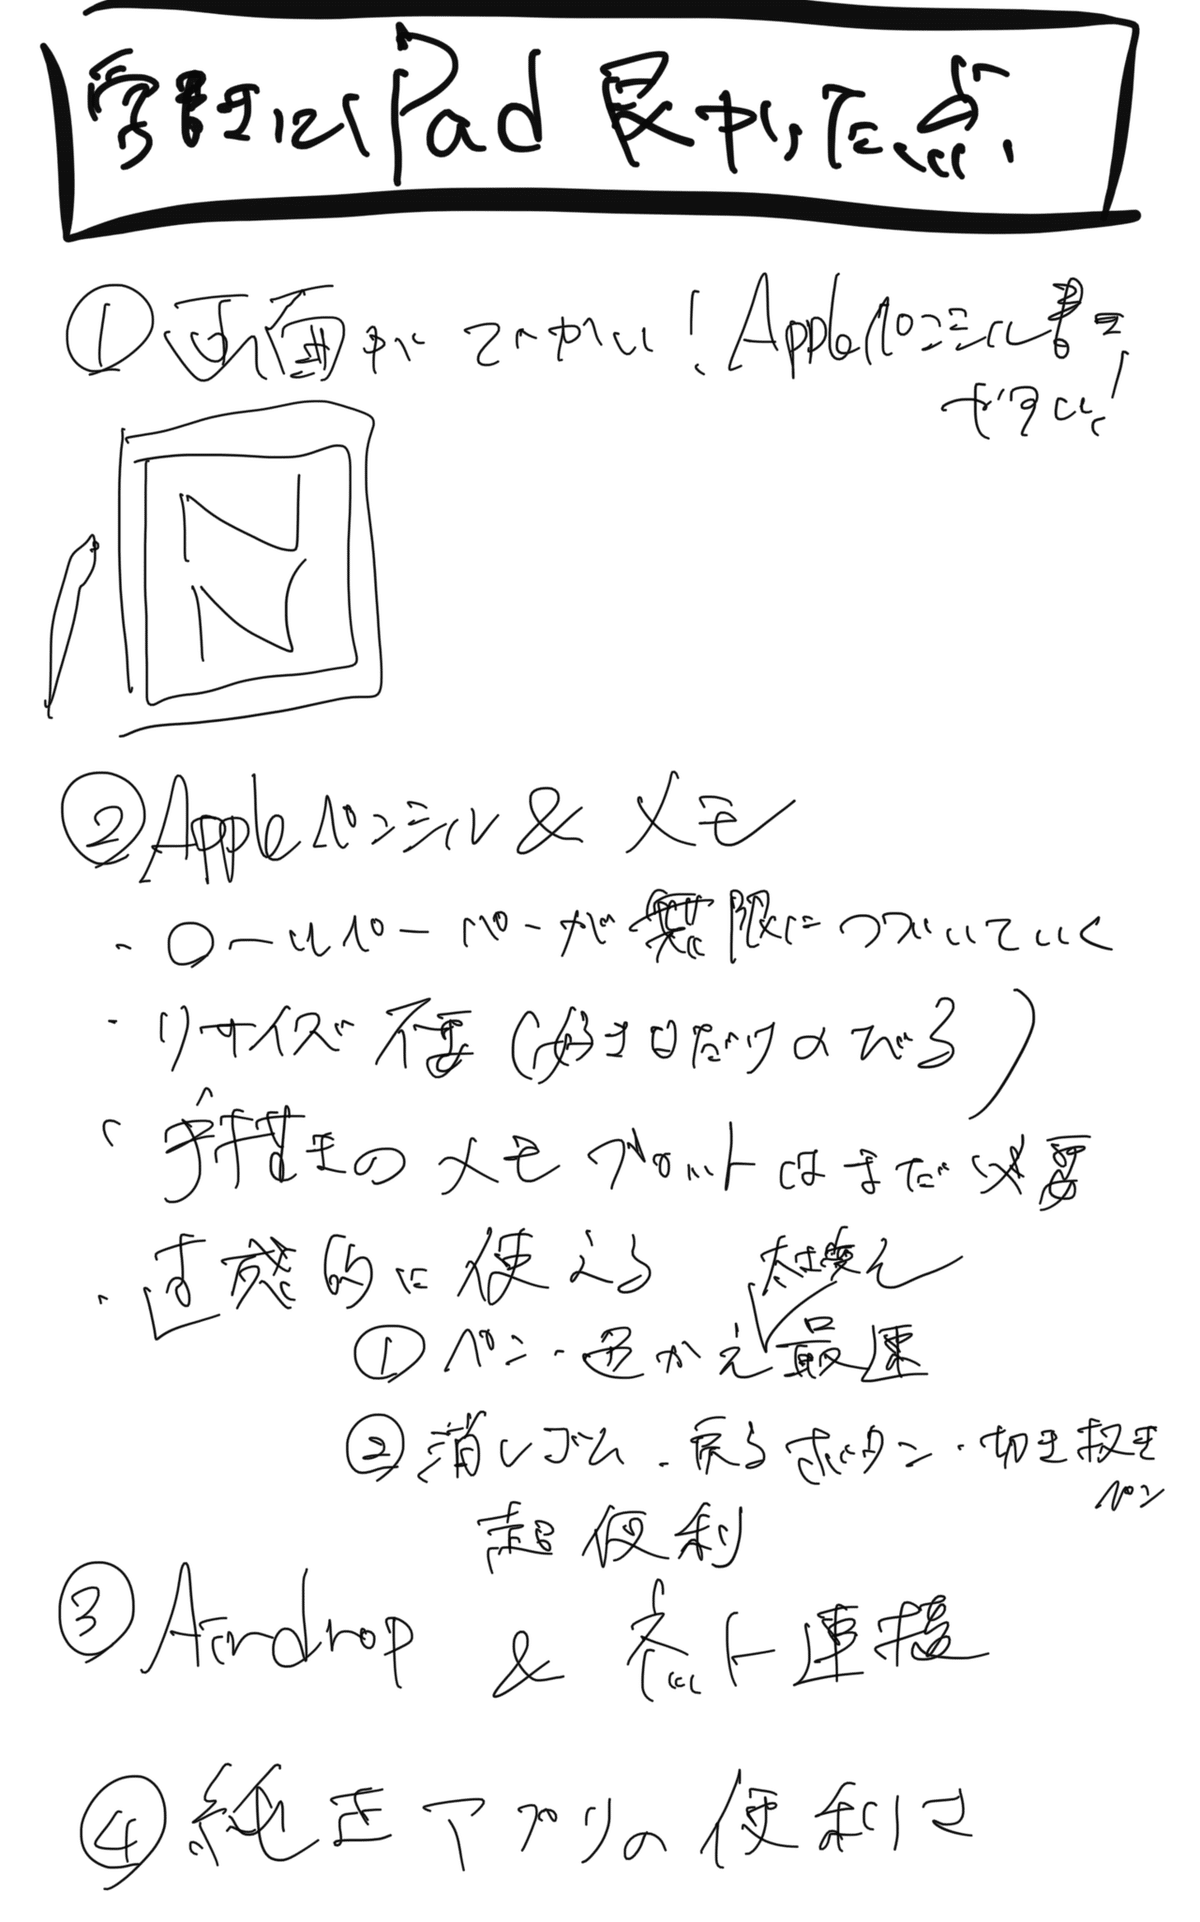 実際にiPad 良かった点
① 画面がでかい! Appleペンシル書き
やすい!
N
N
② Appleペンシル & メモ
・ロールペーパーが無限につづいていく
・リサイズ不要 (好きなだけのびる)
・手書きのメモ はまだ必要
・直感的に使える
① ペン・色かえ最速
② 消しゴム・戻るボタン・切り取り
ペン
超便利
③ Airdrop & ネット連携
④ 純正アプリの便利さ